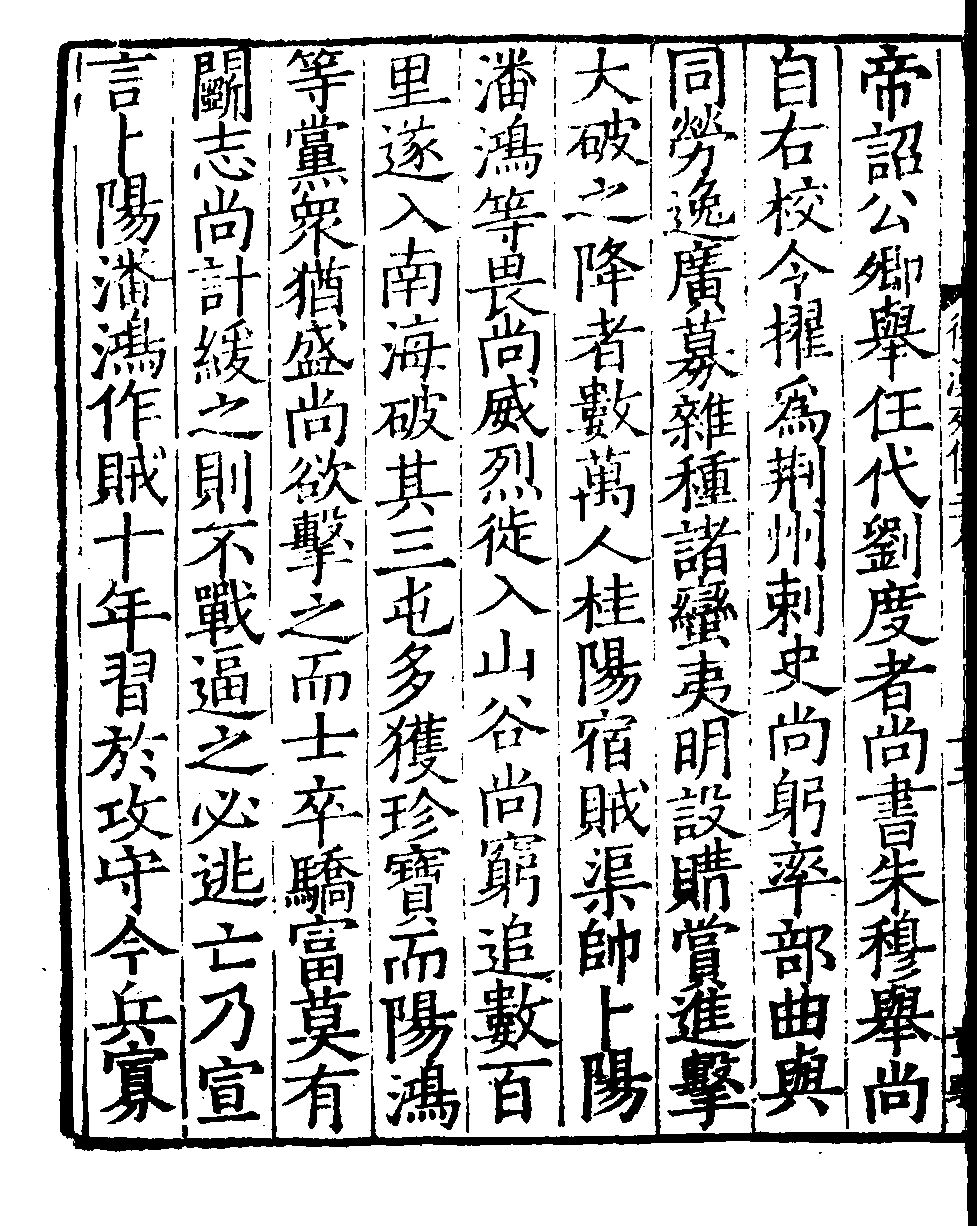 帝詔公卿舉任代劉度者尚書朱穆舉尚
自右校令擢爲荆州刺史尚躬率部曲與
同勞逸廣募雜種諸蠻夷明設購賞進擊
大破之降者數萬人桂陽宿賊渠帥卜陽
潘鴻等畏尚威烈徙入山谷尚窮追數百
里遂入南海破其三屯多獲珍寶而陽鴻
等黨衆猶盛尚欲擊之而士卒驕富莫有
鬭志尚計緩之則不戰逼之必逃亡乃宣
言卜陽潘鴻作賊十年習於攻守今兵寡